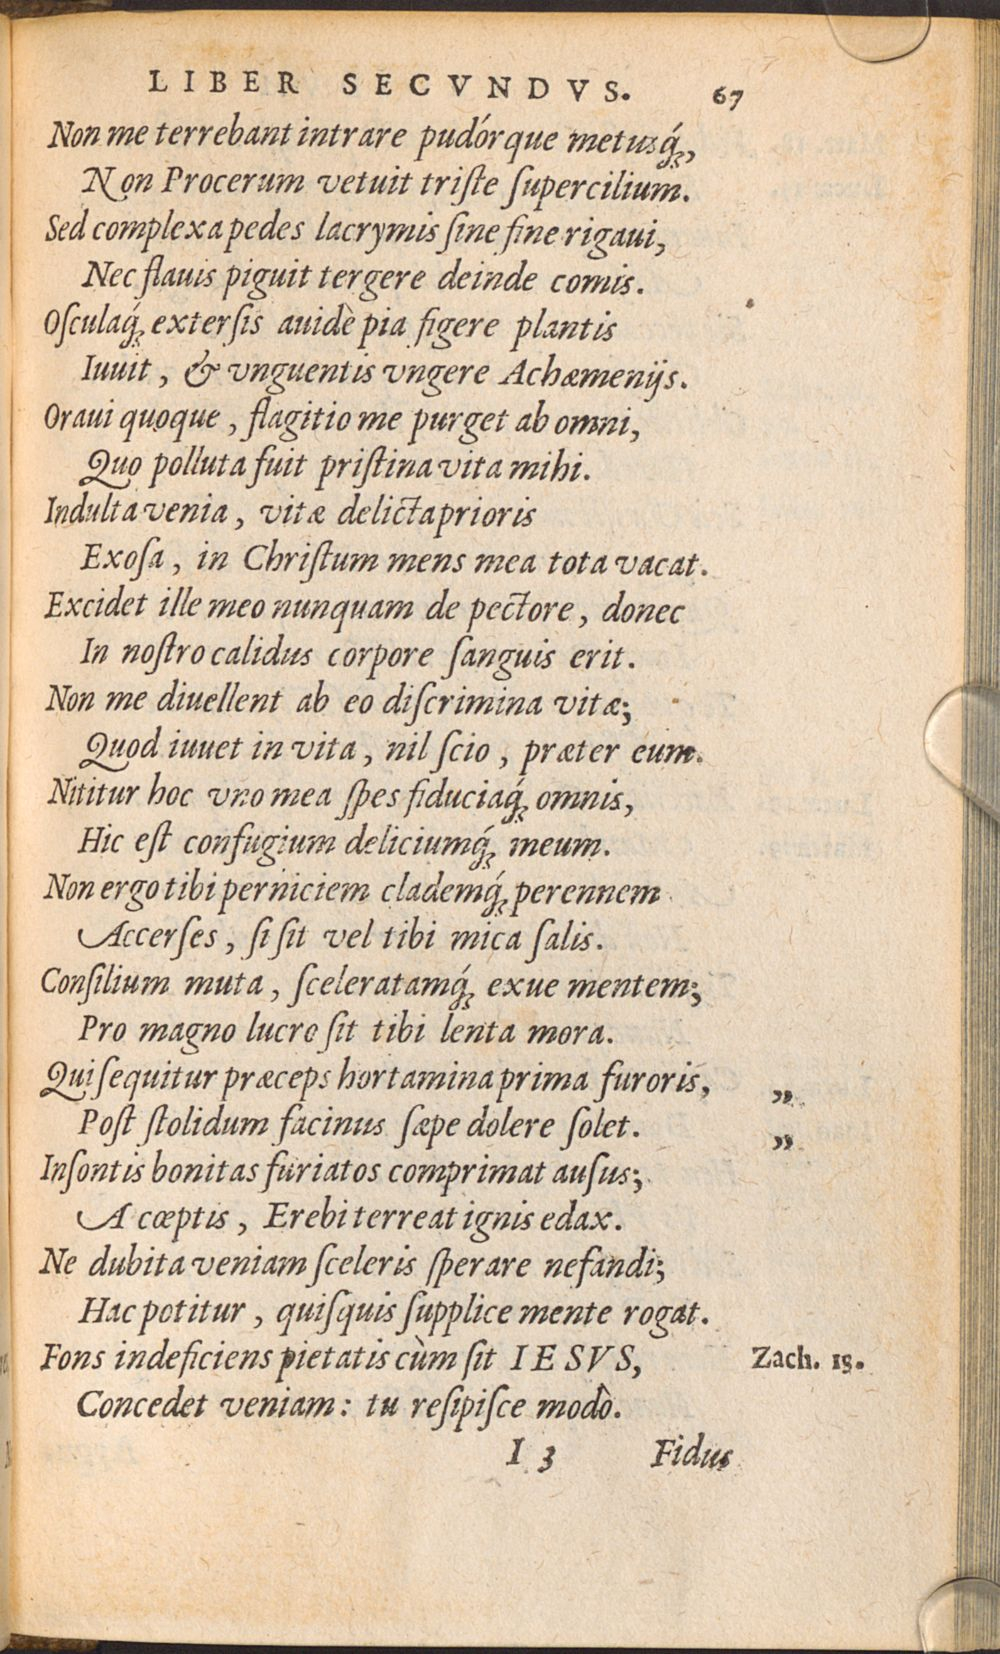 LIBER SECVNDVS. 67
Non me terrebant intrare pudórque metusq́;,
Non Procerum vetuit triſte ſupercilium.
Sed complexa pedes lacrymis ſine fine rigaui,
Nec flauis piguit tergere deinde comis.
Oſculaq́; exterſis auidè pia figere plantis
Iuuit, & vnguentis vngere Achæmenijs.
Oraui quoque, flagitio me purget ab omni,
Quo polluta fuit priſtina vita mihi.
Indulta venia, vitæ delicta prioris
Exoſa, in Chriſtum mens mea tota vacat.
Excidet ille meo nunquam de pectore, donec
In noſtro calidus corpore ſanguis erit.
Non me diuellent ab eo diſcrimina vitæ;
Quod iuuet in vita, nil ſcio, præter eum.
Nititur hoc vno mea ſpes fiduciaq́; omnis,
Hic eſt confugium deliciumq́; meum.
Non ergo tibi perniciem clademq́; perennem
Accerſes, ſi ſit vel tibi mica ſalis.
Conſilium muta, ſceleratamq́; exue mentem;
Pro magno lucro ſit tibi lenta mora.
Qui ſequitur præceps hortamina prima furoris, „
Poſt ſtolidum facinus ſæpe dolere ſolet. „
Inſontis bonitas furiatos comprimat auſus;
A cœptis, Erebi terreat ignis edax.
Ne dubita veniam ſceleris ſperare nefandi;
Hac potitur, quiſquis ſupplice mente rogat.
Fons indeficiens pietatis cùm ſit IESVS, Zach. 13.
Concedet veniam: tu reſipiſce modò.
I 3 Fidus